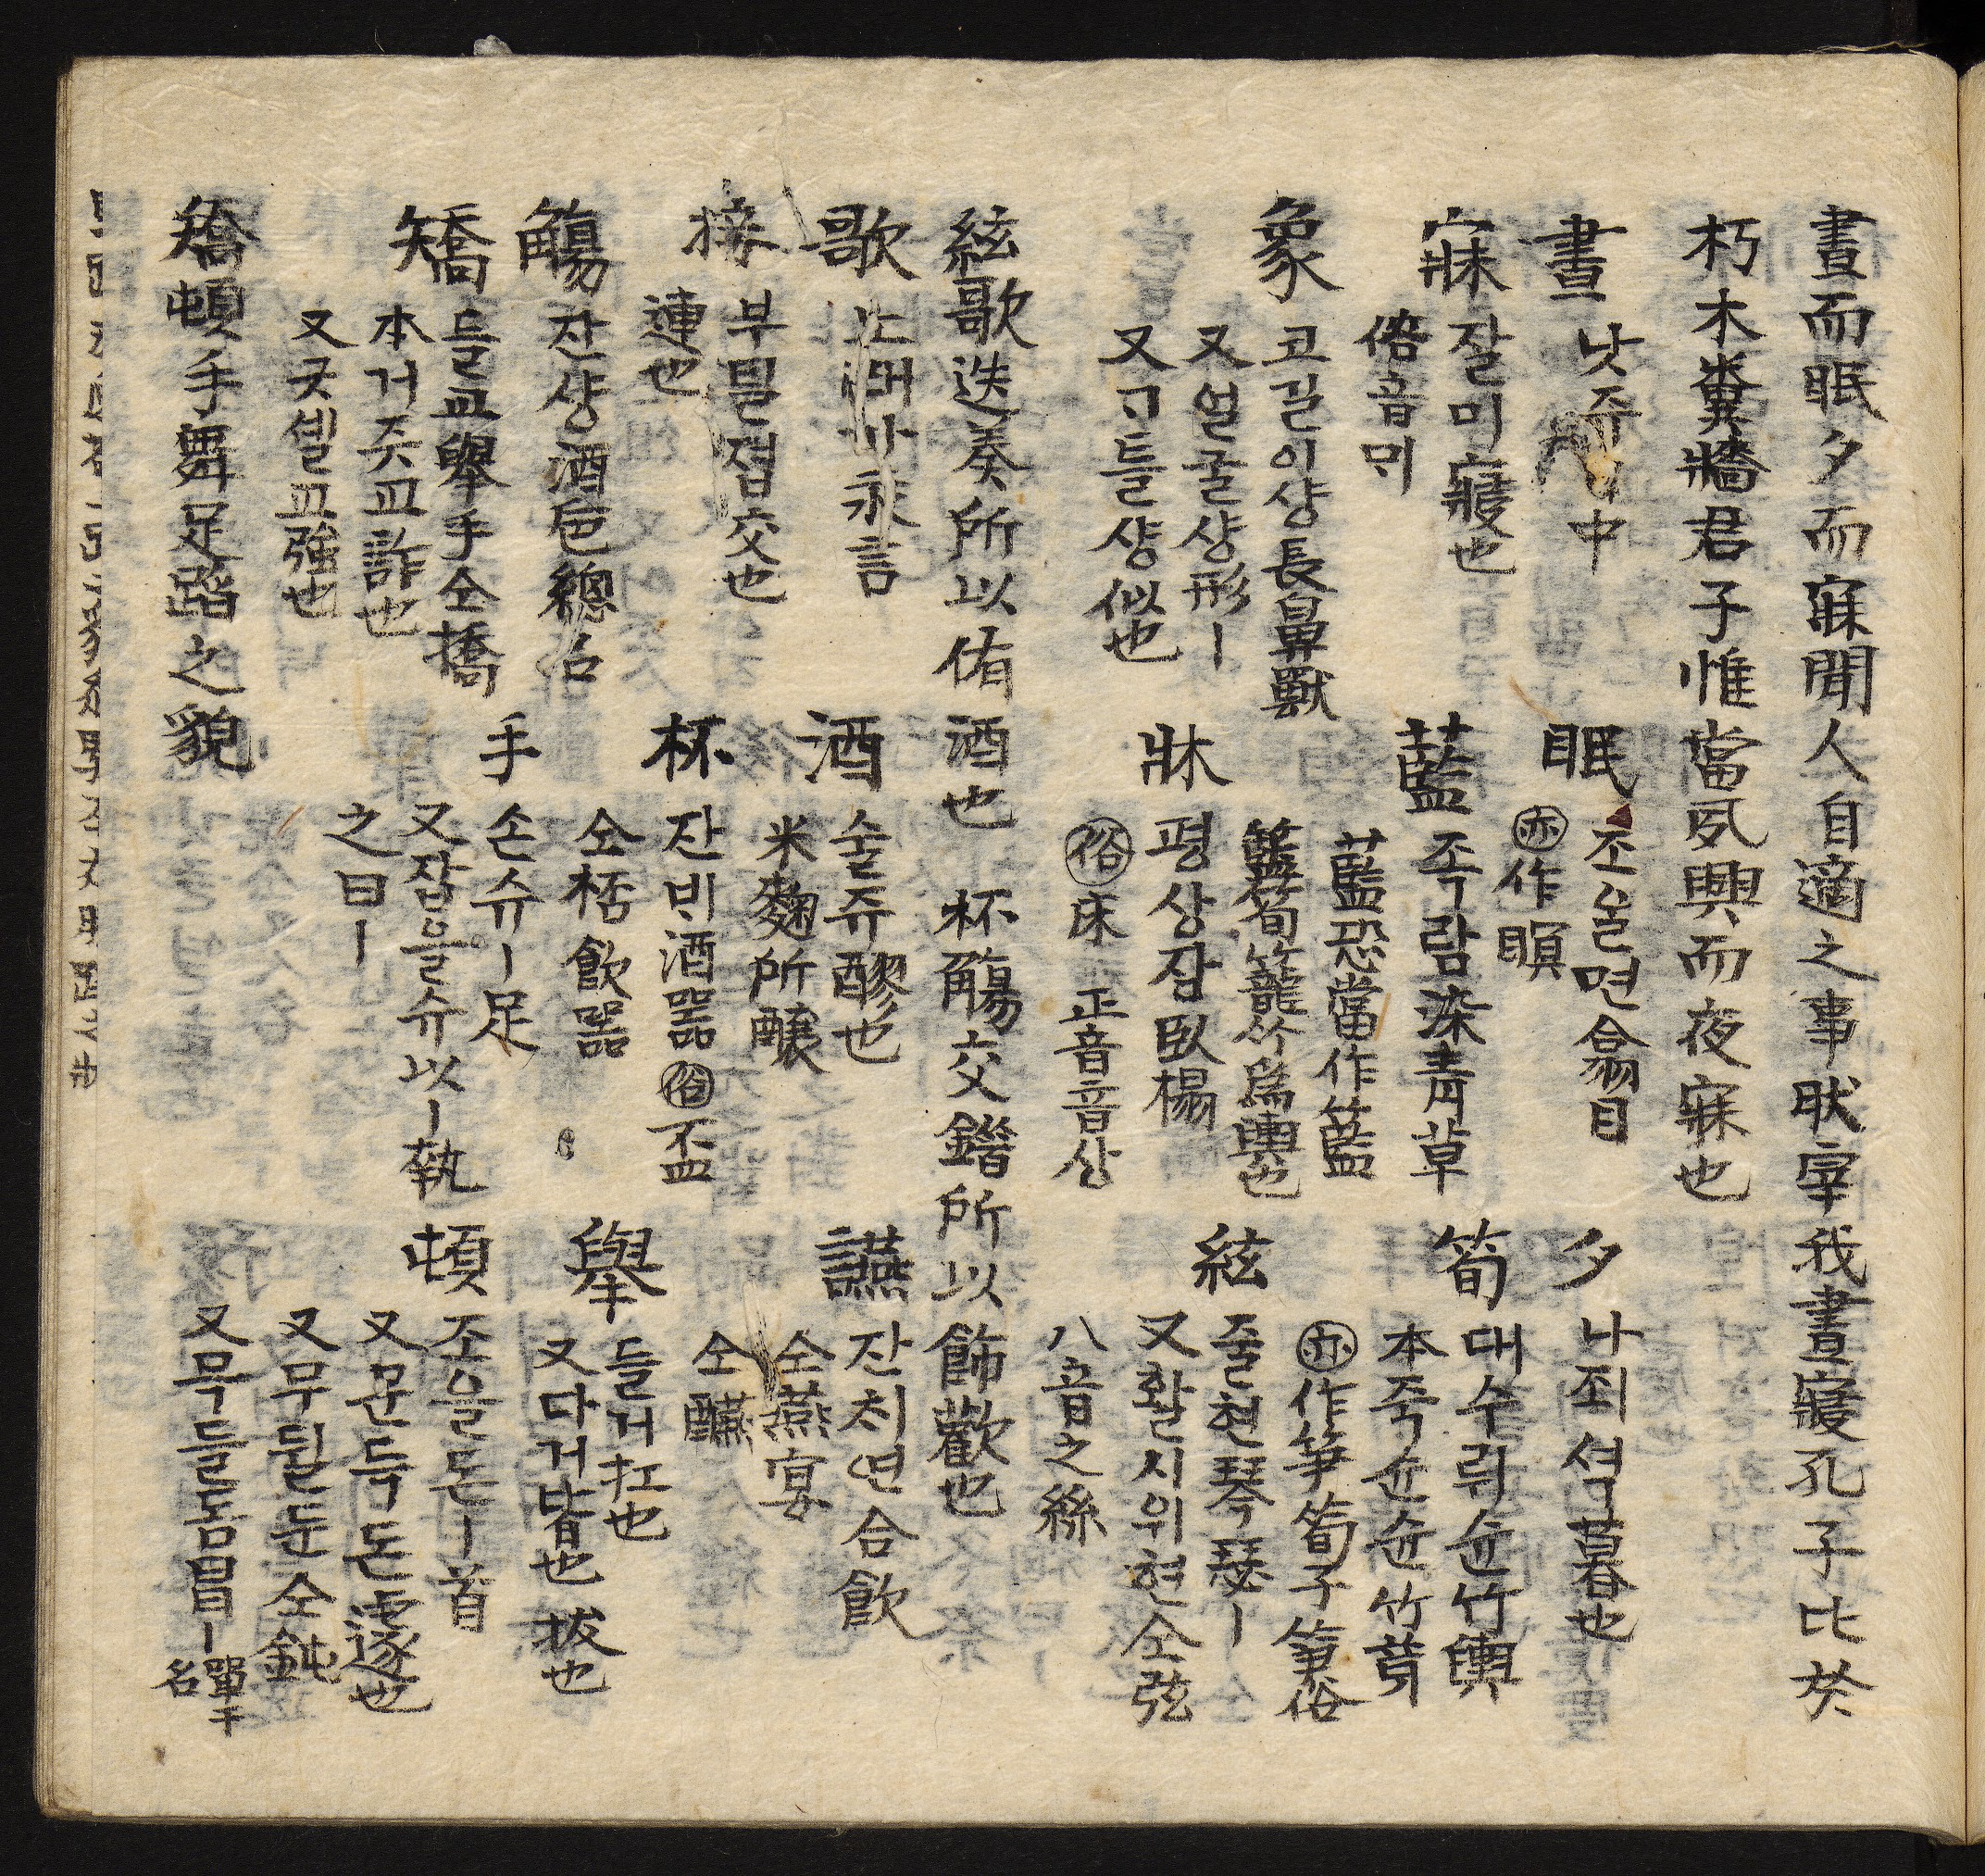 晝而眠夕而寐閒人自適之事肰宰我晝寢孔子比於
朽木糞牆君子惟當夙興而夜寐也
晝 낫쥬 中
眠 조올면翕目
亦作瞑
夕 나죄셕暮也
寐 잘미寢也
俗音ᄆᆡ
藍 족람染靑草
藍恐當作籃
籃筍籠竹爲輿也
筍 대수뤼슌竹輿
本쥭슌슌竹萌
亦作笋筍子笋俗
象 고길이샹長鼻獸
又얼굴샹形ㅣ
又ᄀᆞ들샹似也
牀 평상잠臥榻
俗床 正音音상
絃 줄현琴瑟ㅣ
又활시위현仝弦
八音之絲
絃歌迭奏所以侑酒也 杯觴交錯所以飾歡也
歌 노래가永言
酒 술쥬醪也
米麯所釀
讌 잔치연合飮
仝燕宴
仝醼
接 부틸졉交也
連也
杯 잔ᄇᆡ酒器俗盃
仝桮飮器
擧 들거扛也
又다거皆也拔也
觴 잔샹酒巵總名
矯 들교擧手仝撟
本거즛교詐也
又굿셸교強也
手 손슈ㅣ足
又잡을슈以ㅣ執
之曰ㅣ
頓 조을돈ㅣ首
又믄득돈遽也
又무딜둔仝鈍
又묵돌돌冒ㅣ單于名
矯頓手舞足蹈之貌